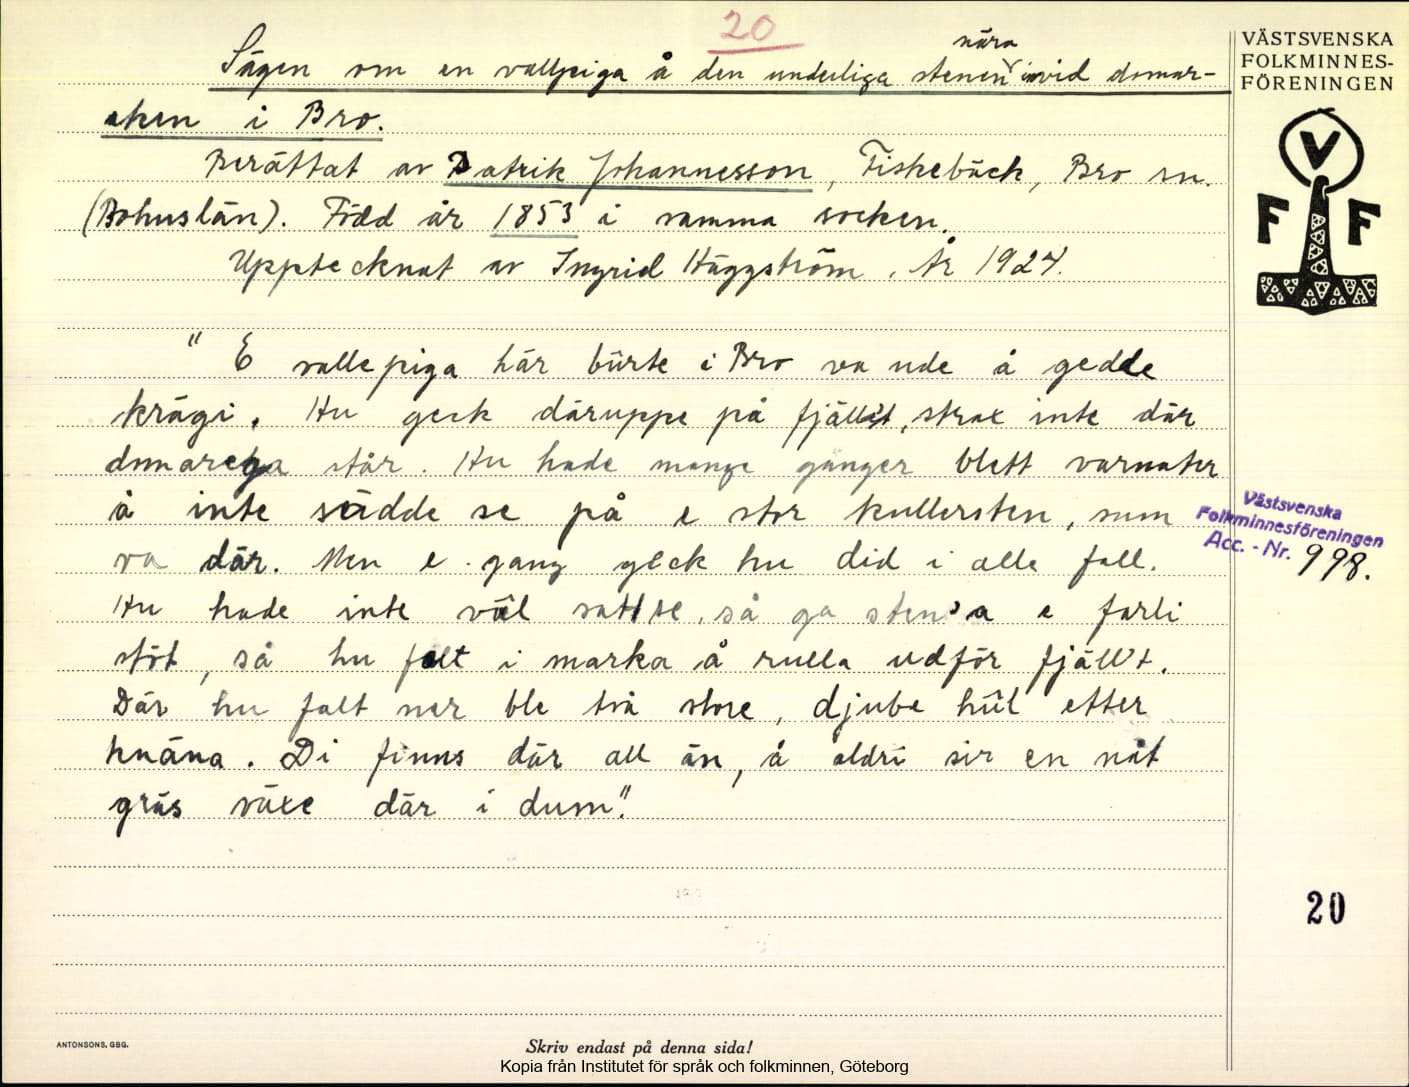 20
Sägen om en vallpiga å den underliga stenen nära invid domar-
eken i Bro.
Berättat av Patrik Johannesson, Fiskebäck, Bro sn.
(Bohuslän). Född år 1853 i samma socken.
Upptecknat av Ingrid Häggström. År 1924.
"E vallepiga här bûrte i Bro va ude å gedde
krägi. Hu geck däruppe på fjället, strax inte där
domarega står. Hu hade mange gånger blett varnater
å inte sädde se på e stor kullersten, sum
va där. Men e gang geck hu did i alle fall.
Hu hade inte väl satt se, så ga sten'a e farli
stöt, så hu falt i marka å rulla udför fjäll't.
Där hu falt ner ble två store, djube hûl etter
knäna. Di finns där all än, å aldri sir en nåt
gräs växe där i dum".
VÄSTSVENSKA
FOLKMINNES-
FÖRENINGEN
V
F F
Västsvenska
Folkminnesföreningen
Acc. - Nr. 998.
20
ANTONSONS, GBG.
Skriv endast på denna sida!
Kopia från Institutet för språk och folkminnen, Göteborg